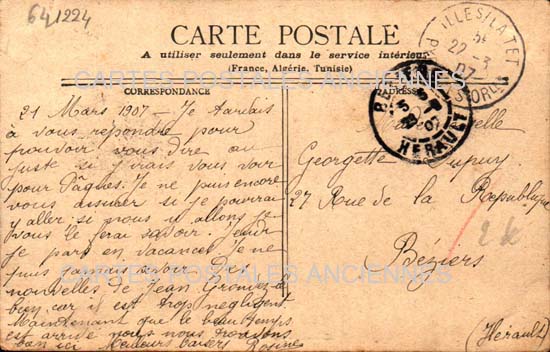 641224
CARTE POSTALE
A utiliser seulement dans le service intérieur
(France, Algérie, Tunisie)
CARTES POSTALES ANCIENNES
CORRESPONDANCE
ADRESSE
21 Mars 1907 - Je tardais
à vous répondre pour
pouvoir vous dire au
juste si j'irais vous voir
pour Pâques. Je ne puis encore
vous assurer si je pourrai
y aller. si nous y allons je
vous le ferai savoir. Jeudi
je pars en vacances. Je ne
puis pas savoir
nouvelles de Jean.
bien car il est trop négligent
Maintenant que le beau temps
est arrivé nous nous trouvons
bien ici Meilleurs baisers
Georgette
27 Rue de la République
Béziers
(Hérault)
22 3
07
HERAULT
CARTES POSTALES ANCIENNES